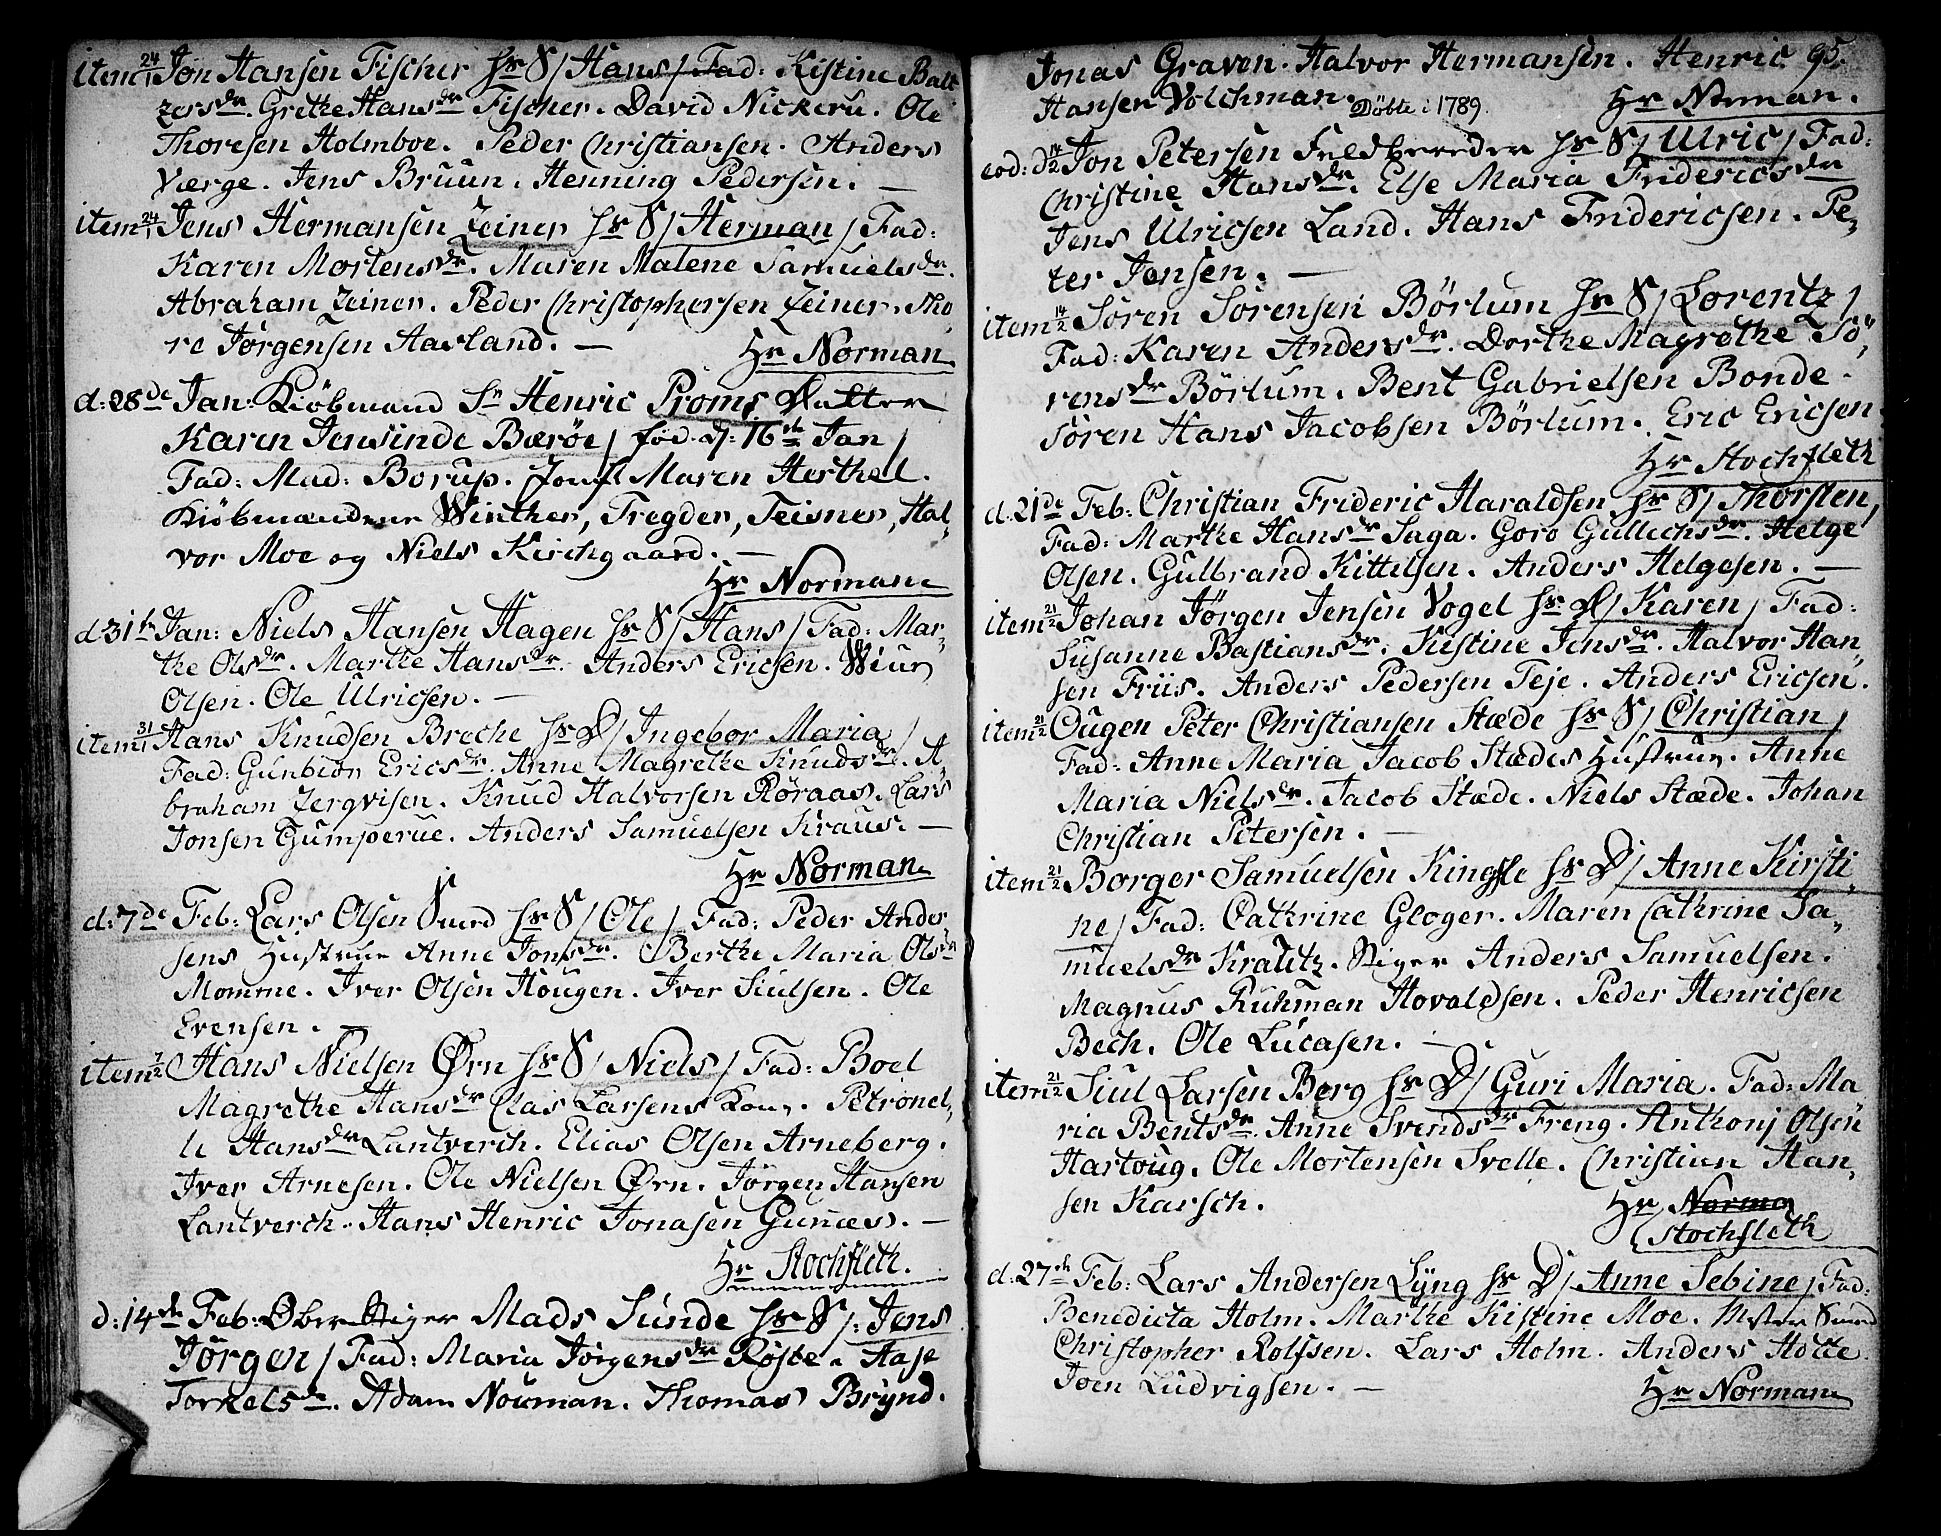 item 24/1 Jon Hansen Fischer hs S/ Hans / Fad: Kistine Balt
zersdr. Grethe Hansdr Fischer. David Nickeru. Ole
Thoresen Holmboe. Peder Christiansen. Anders
Værge. Jens Bruun. Henning Pedersen. —
item 24/1 Jens Hermansen Zeiner hs S/ Herman / Fad:
Karen Mortensdr. Maren Malene Samuelsdr.
Abraham Zeiner. Peder Christophersen Zeiner. Tho,,
re Jørgensen Aasland. —
Hr Norman
d: 28de Jan: Kiöbmand Sr Henric Proms Dutter
Karen Jensinde Bæröe / fød d: 16de Jan /
Fad: Mad: Borup. Jomf Maren Hesthal.
Kiöbmændene Winther, Tregder, Teisner, Hal,,
vor Moe og Niels Kirchgaard. —
Hr Norman
d. 31te Jan: Niels Hansen Hagen hs S/ Hans / Fad: Mar,,
the Olsdr. Marthe Hansdr. Anders Ericsen.
Olsen. Ole Ulricsen. —
item 31/1 Hans Knudsen Breche hs D/ Ingebor Maria /
Fad: Gunbiör Ericsdr. Anne Magrethe Knudsdr. A,,
braham Zergvisen. Knud Halvorsen Röraas. Lars
Jonsen Gumperue. Anders Samuelsen Kraus. —
Hr Norman
d: 7de Feb: Lars Olsen Smed hs S/ Ole / Fad: Peder Ander,,
sens Hustrue Anne Jonsdr. Berthe Maria Olsdr
Momme. Iver Olsen Hougen. Iver Siulsen. Ole
Evensen. —
item 7/2 Hans Nielsen Ørn hs S/ Niels / Fad: Boel
Magrethe Hansdr Clas Larsens Kone. Petronel,,
le Hansdr Lantverch. Elias Olsen Arneberg.
Iver Arnesen. Ole Nielsen Ørn. Jörgen Hansen
Lantverch. Hans Henric Jonasen Gunæs. —
Hr Stochfleth.
d: 14de Feb: Ober Stiger Mads Sunde hs S/: Jens
Jörgen / Fad: Maria Jörgensdr Röste. Aase
Torkelsdr. Adam Nouman. Thomas Brynd.
Jonas Graven. Halvor Hermansen. Henric 95.
Hansen Volchman.
Döbte i 1789.
Hr Norman.
eod: d 14/2 Jon Petersen Feldbereder hs S/ Ulric / Fad:
Christine Hansdr. Else Maria Fridericsdr
Jens Ulricsen Land. Hans Fridericsen. Pe,,
ter Jensen. —
item 14/2 Sören Sörensen Börlum hs S/ Lorentz /
Fad: Karen Andersdr. Dorthe Magrethe Sö,,
rensdr Börlum. Bent Gabrielsen Bonde.
Sören Hans Jacobsen Börlum. Eric Ericsen.
Hr Stochfleth
d: 21de Feb: Christian Frideric Haraldsen hs S/ Thorsten /
Fad: Marthe Hansdr Saga. Goro Gullichsdr. Helge
Olsen. Gulbrand Kittelsen. Anders Helgesen. —
item 21/2 Johan Jörgen Jensen Vogel hs D/ Karen / Fad:
Susanne Bastiansdr. Kistine Jensdr. Halvor Han,,
sen Friis. Anders Pedersen Teje. Anders Ericsen.
item 21/2 Ougen Peter Christiansen Stæde hs S/ Christian /
Fad: Anne Maria Jacob Stædes Hustrue. Anne
Maria Nielsdr. Jacob Stæde. Niels Stæde. Johan
Christian Petersen. —
item 21/2 Borger Samuelsen Kingsle hs D/ Anne Kirsti,,
ne / Fad: Cathrine Gloger. Maren Cathrine Sa,,
muelsdr Kralitz. Stiger Anders Samuelsen.
Magnus Ruhman Hovaldsen. Peder Henricsen
Bech. Ole Lucasen. —
item 21/2 Siul Larsen Berg hs D/ Guri Maria. Fad: Ma
ria Bentsdr. Anne Svendsdr Freng. Anthonj Olsen
Hartoug. Ole Mortensen Svelle. Christian Han,,
sen Karsch.
Hr Norman
Stochfleth
d: 27de Feb: Lars Andersen Lyng hs D/ Anne Sebine / Fad:
Benedicta Holm. Marthe Kistine Moe. Mster Smed
Christopher Rolfsen. Lars Holm. Anders Hotte.
Joen Ludvigsen. —
Hr Norman